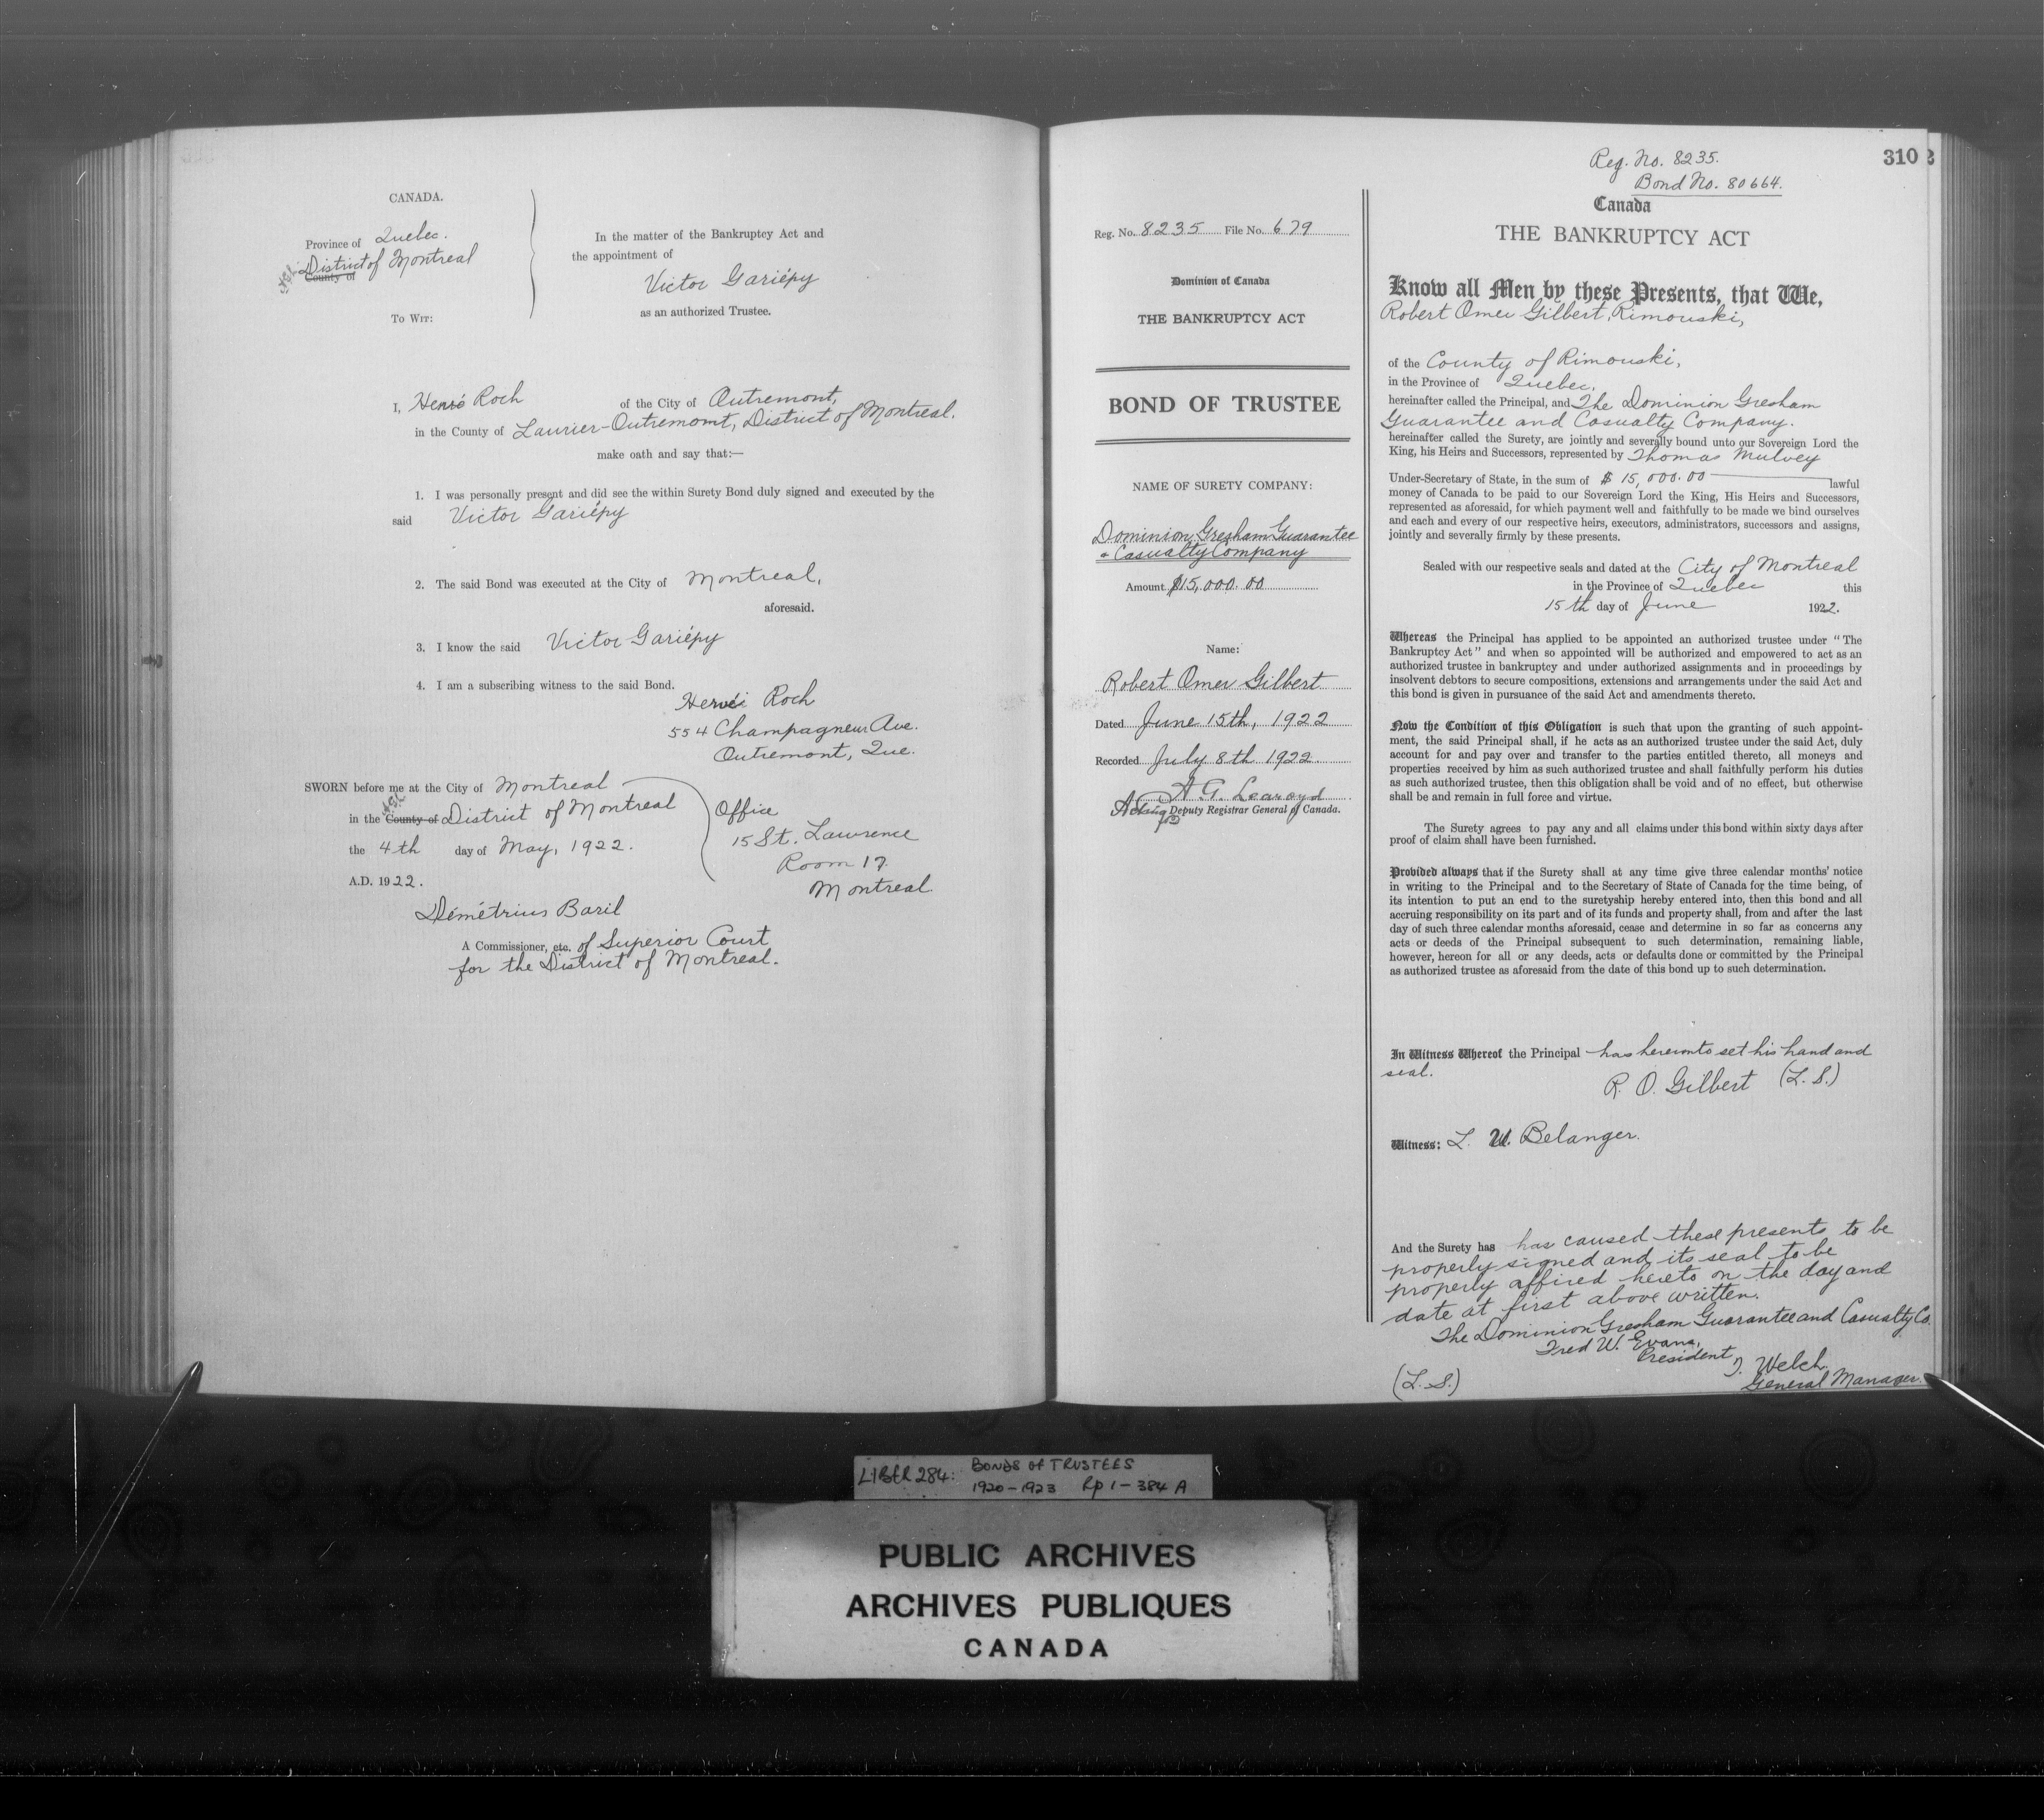 CANADA.
Province of Quebec.
District of Montreal
County of
To Wit:
In the matter of the Bankruptcy Act and
the appointment of
Victor Gariépy
as an authorized Trustee.
I, Hervé Roch of the City of Outremont,
in the County of Laurier-Outremont, District of Montreal.
make oath and say that:—
1. I was personally present and did see the within Surety Bond duly signed and executed by the
said Victor Gariépy
2. The said Bond was executed at the City of Montreal,
aforesaid.
3. I know the said Victor Gariépy
4. I am a subscribing witness to the said Bond.
Hervé Roch
554 Champagneur Ave.
Outremont, Que.
SWORN before me at the City of Montreal
in the County of District of Montreal
the 4th day of May, 1922.
A.D. 1922.
Office
15 St. Lawrence
Room 17
Montreal.
Démétrius Baril
A Commissioner, etc. of Superior Court
for the District of Montreal.
Reg. No. 8235 File No. 679
Dominion of Canada
THE BANKRUPTCY ACT
BOND OF TRUSTEE
NAME OF SURETY COMPANY:
Dominion Gresham Guarantee
& Casualty Company
Amount $15,000.00
Name:
Robert Omer Gilbert
Dated June 15th, 1922
Recorded July 8th 1922
A G. Learoyd
Acting Deputy Registrar General of Canada.
310
Reg. No. 8235.
Bond No. 80664.
Canada
THE BANKRUPTCY ACT
Know all Men by these Presents, that We,
Robert Omer Gilbert, Rimouski,
of the County of Rimouski,
in the Province of Quebec,
hereinafter called the Principal, and The Dominion Gresham
Guarantee and Casualty Company.
hereinafter called the Surety, are jointly and severally bound unto our Sovereign Lord the
King, his Heirs and Successors, represented by Thomas Mulvey
Under-Secretary of State, in the sum of $ 15,000.00 lawful
money of Canada to be paid to our Sovereign Lord the King, His Heirs and Successors,
represented as aforesaid, for which payment well and faithfully to be made we bind ourselves
and each and every of our respective heirs, executors, administrators, successors and assigns,
jointly and severally firmly by these presents.
Sealed with our respective seals and dated at the City of Montreal
in the Province of Quebec this
15th day of June 1922.
Whereas the Principal has applied to be appointed an authorized trustee under "The
Bankruptcy Act" and when so appointed will be authorized and empowered to act as an
authorized trustee in bankruptcy and under authorized assignments and in proceedings by
insolvent debtors to secure compositions, extensions and arrangements under the said Act and
this bond is given in pursuance of the said Act and amendments thereto.
Now the Condition of this Obligation is such that upon the granting of such appoint-
ment, the said Principal shall, if he acts as an authorized trustee under the said Act, duly
account for and pay over and transfer to the parties entitled thereto, all moneys and
properties received by him as such authorized trustee and shall faithfully perform his duties
as such authorized trustee, then this obligation shall be void and of no effect, but otherwise
shall be and remain in full force and virtue.
The Surety agrees to pay any and all claims under this bond within sixty days after
proof of claim shall have been furnished.
Provided always that if the Surety shall at any time give three calendar months' notice
in writing to the Principal and to the Secretary of State of Canada for the time being, of
its intention to put an end to the suretyship hereby entered into, then this bond and all
accruing responsibility on its part and of its funds and property shall, from and after the last
day of such three calendar months aforesaid, cease and determine in so far as concerns any
acts or deeds of the Principal subsequent to such determination, remaining liable,
however, hereon for all or any deeds, acts or defaults done or committed by the Principal
as authorized trustee as aforesaid from the date of this bond up to such determination.
In Witness Whereof the Principal has hereunto set his hand and
seal.
R. O. Gilbert (L. S.)
Witness: L. W. Belanger.
And the Surety has has caused these presents to be
properly signed and its seal to be
properly affixed hereto on the day and
date at first above written.
The Dominion Gresham Guarantee and Casualty Co.
Fred W. Evans,
President,
J. Welch.
General Manager.
(L. S.)
LIBER 284: BONDS OF TRUSTEES
1920-1923 Rp 1-384 A
PUBLIC ARCHIVES
ARCHIVES PUBLIQUES
CANADA